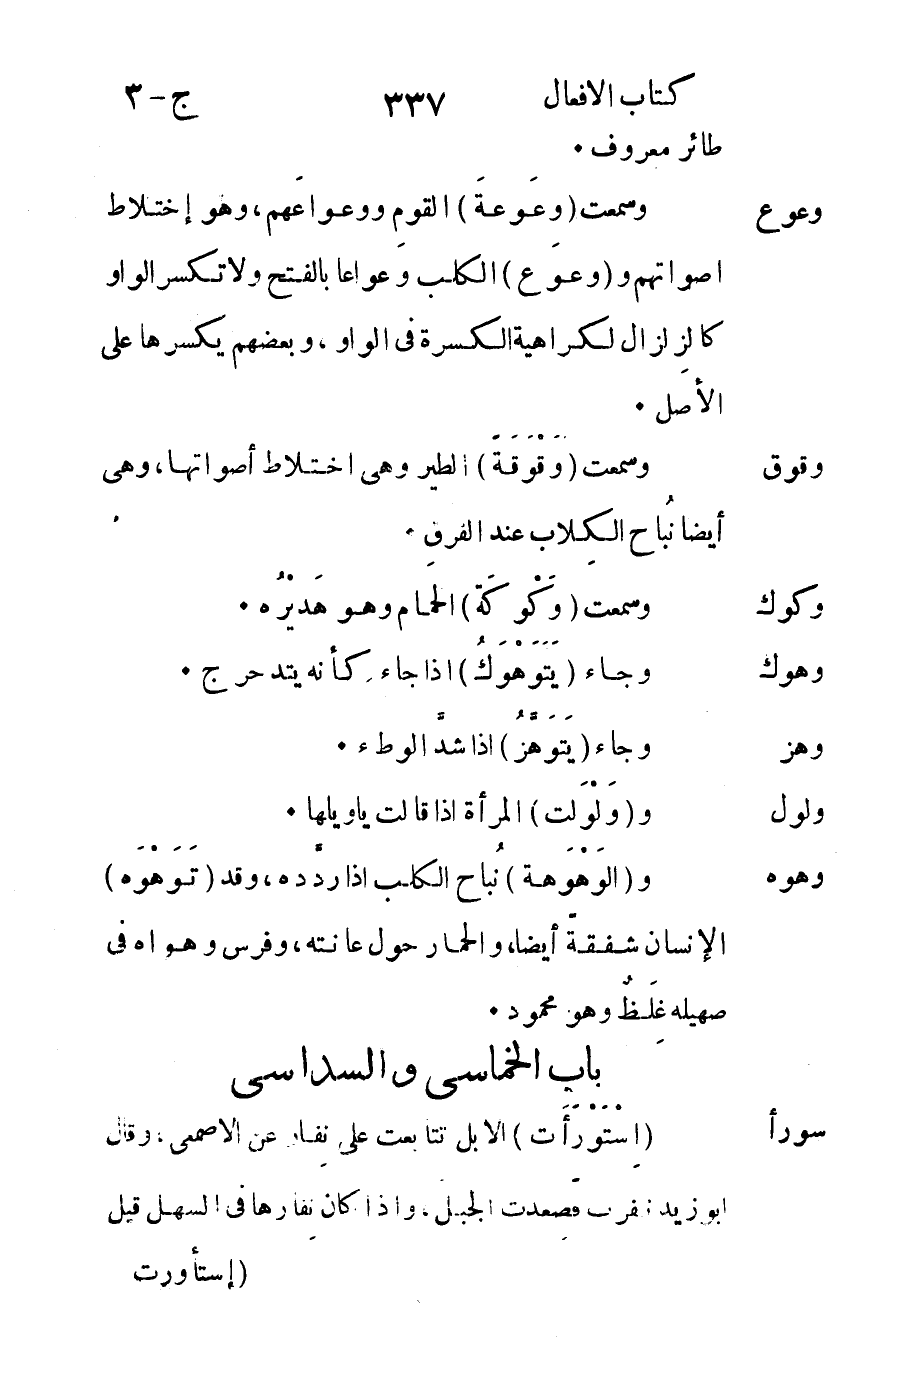 كتاب الافعال ٣٣٧ ج-٣
طائر معروف ٠
وعوع وسمعت (وَعوَعةَ) القوم ووعواعَهم، وهو إختلاط
اصواتهم و(وعوَع) الكلب وَعواعا بالفتح ولا تكسر الواو
كالزِلزال لكراهية الكسرة فى الواو، وبعضهم يكسرها على
الأصل ٠
وقوق وسمعت (وَقْوَقَةَ) الطير وهى اختلاط أصواتها، وهى
أيضا نُباح الكِلاب عند الفرق ٠
وكوك وسمعت (وَكْوَكَةَ) الحمام وهو هَديْرُه ٠
وهوك وجاء (يَتَوَهْوَكُ) اذا جاء كأنه يتدحرج ٠
وهز وجاء (يَتَوَهَّزُ) اذا شدَّ الوطء ٠
ولول و(وَلْوَلت) المرأة اذا قالت ياويلها ٠
وهوه و(الوَهْوَهة) نُباح الكلب اذا ردَّده، وقد (تَوَهْوَه)
الإنسان شفقةً أيضا، والحمار حول عانته، وفرس وهواه فى
صهيله غِلَظٌ وهو محمود ٠
باب الخماسى والسداسى
سورأ (اِسْتَوْرَأَت) الابل تتابعت على نِفار عن الاصمعى، وقال
ابو زيد نفرت فصعِّدت الجبل، واذا كان نِفارها فى السهل قيل
(إستأورت